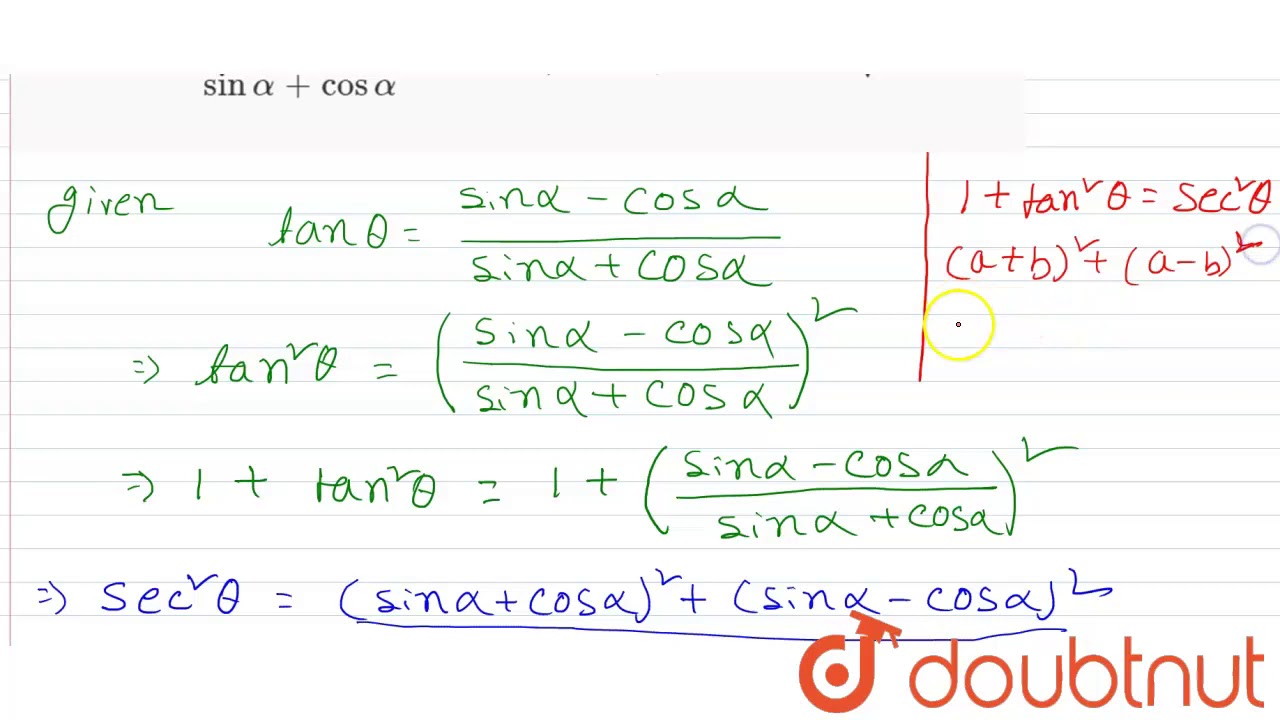 sin α + cos α
given tanθ = (sinα − cosα)/(sinα + cosα)
⇒ tan²θ = ((sinα − cosα)/(sinα + cosα))²
⇒ 1 + tan²θ = 1 + ((sinα − cosα)/(sinα + cosα))²
⇒ sec²θ = (sinα + cosα)² + (sinα − cosα)²
1 + tan²θ = sec²θ
(a+b)² + (a−b)²
doubtnut